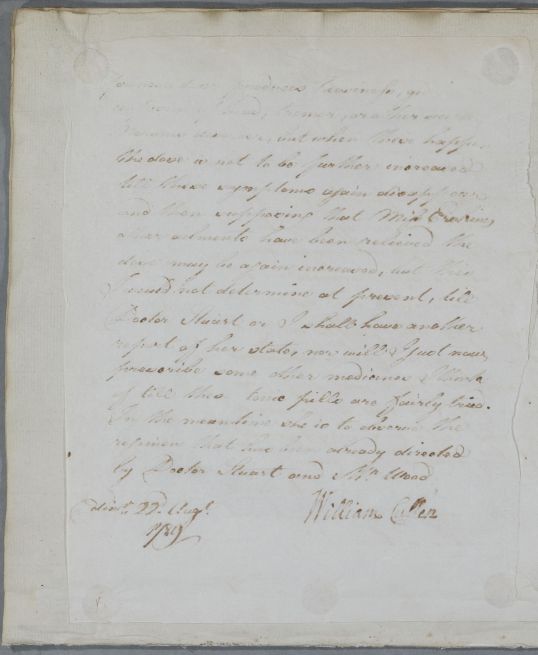 produces
head, tremor, or other
but when these happen
the dose is not to be further increased
till these symptoms again disappear
and then supposing that Miss
other ailments have been relieved the
dose may be again increased, but this
I need not determine at present, till
Doctor Stuart or I shall have another
report of her state, nor will I just now
prescribe some other medicines I think
of till the pills are fairly tried.
In the meantime she is to observe the
regimen that has been already directed
by Doctor Stuart and Mr. Wood
Edinr. 22d. Augt. William Cullen